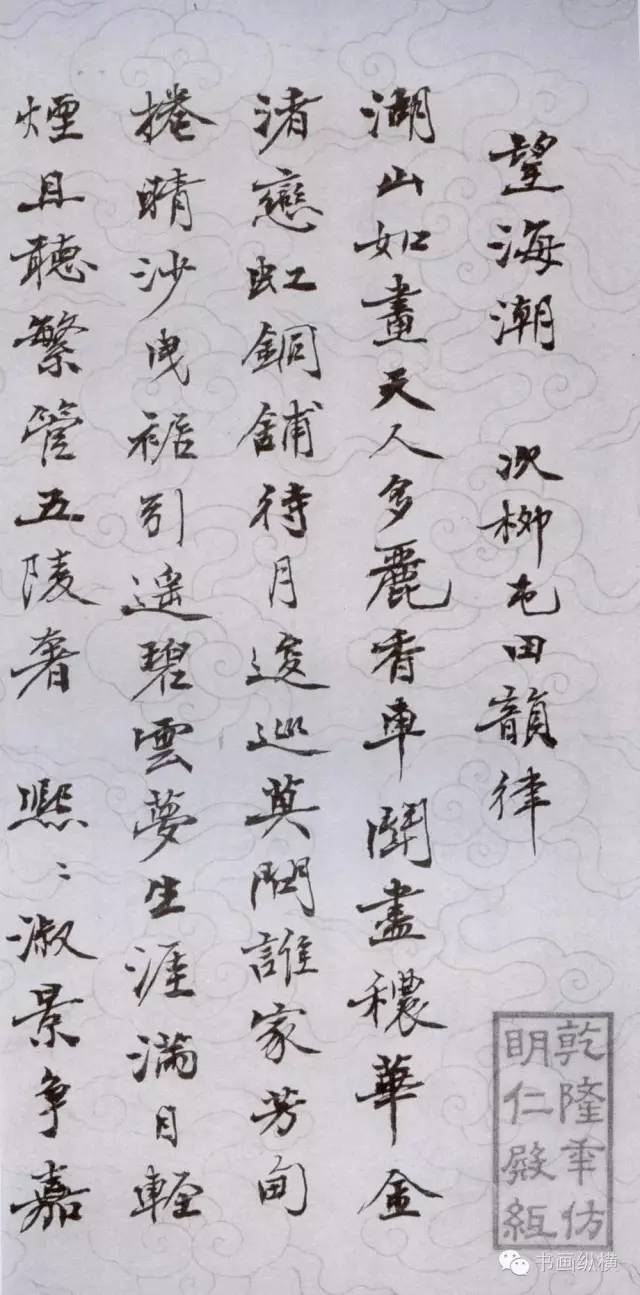 望海潮 次柳屯田韻律
湖山如畫天人多麗香車鬬盡穠華金
渚戀虹銅鋪待月逡巡莫問誰家芳甸
捲晴沙曳裾引遥碧雲夢生涯滿目輕
煙且聽繁管五陵奢 熙〻淑景争嘉
乾隆年仿
明仁殿紙
书画纵横